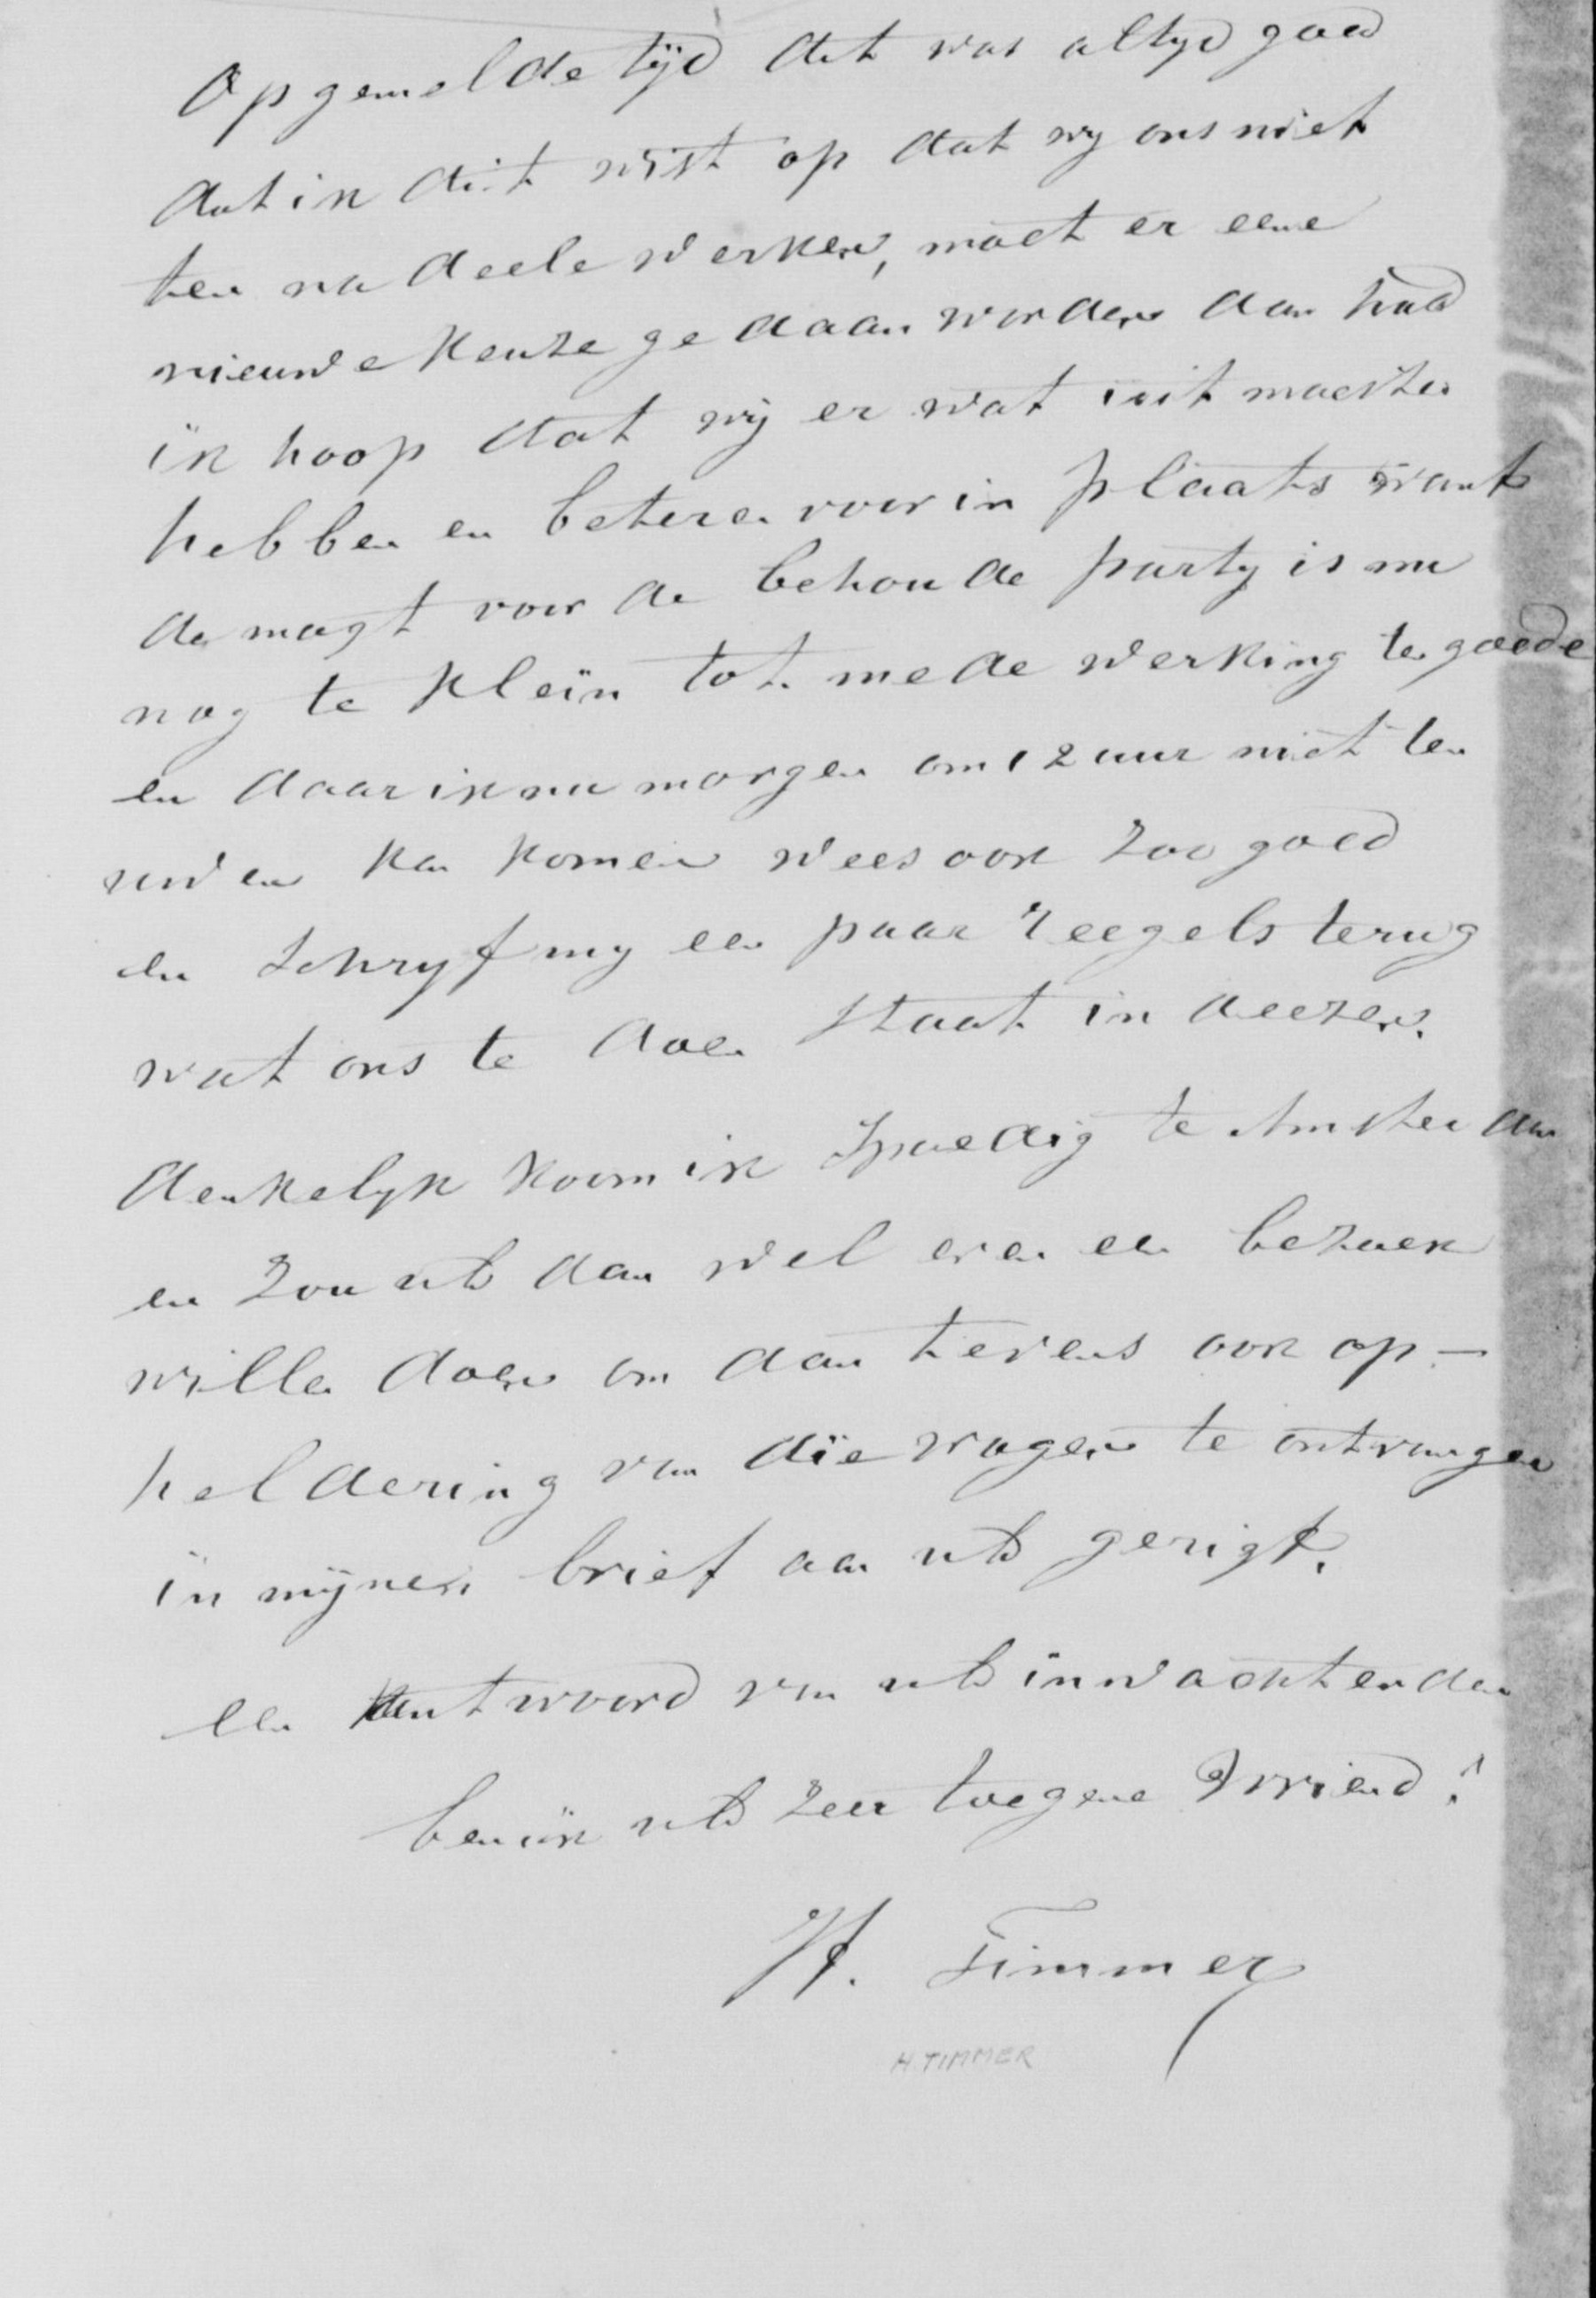 Op gemelde tijd dit was altyd goed
dat ik dit wist op dat wy ons niet
ten na deele werken, moet er eene
nieuwe keuze gedaan worden dan had
ik hoop dat wij er wat uit mosten
hebben en betere voor in plaats want
de magt voor de behoude party is nu
nog te klein tot mede werking te goede
en daar ik nu morgen om 12 uur niet ten
uwen kan komen wees ook zoo goed
en schryf my een paar reegels terug
wat ons te doen staat in deezen.
denkelyk koom ik spoedig te Amsterdam
en zou uEd dan wel even een bezoek
willen doen om dan tevens ook op-
heldering van die vragen te ontvangen
in mijnen brief aan uEd gerigt.
een antwoord van uEd inwachtenden
ben ik uEd zeer toegene Vriend!
H. Timmer
H. TIMMER